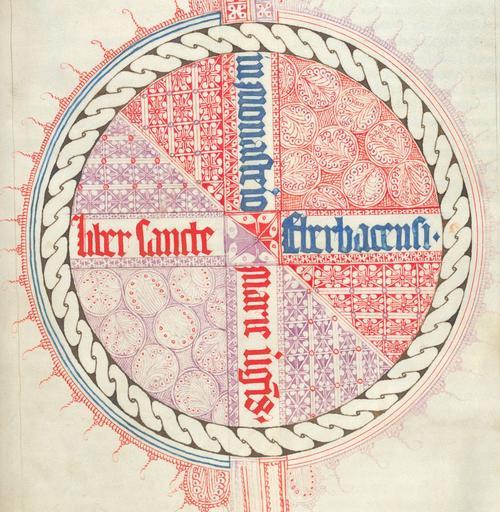 liber sancte
marie v̓gis·
in monasterio
Eberbacensi·